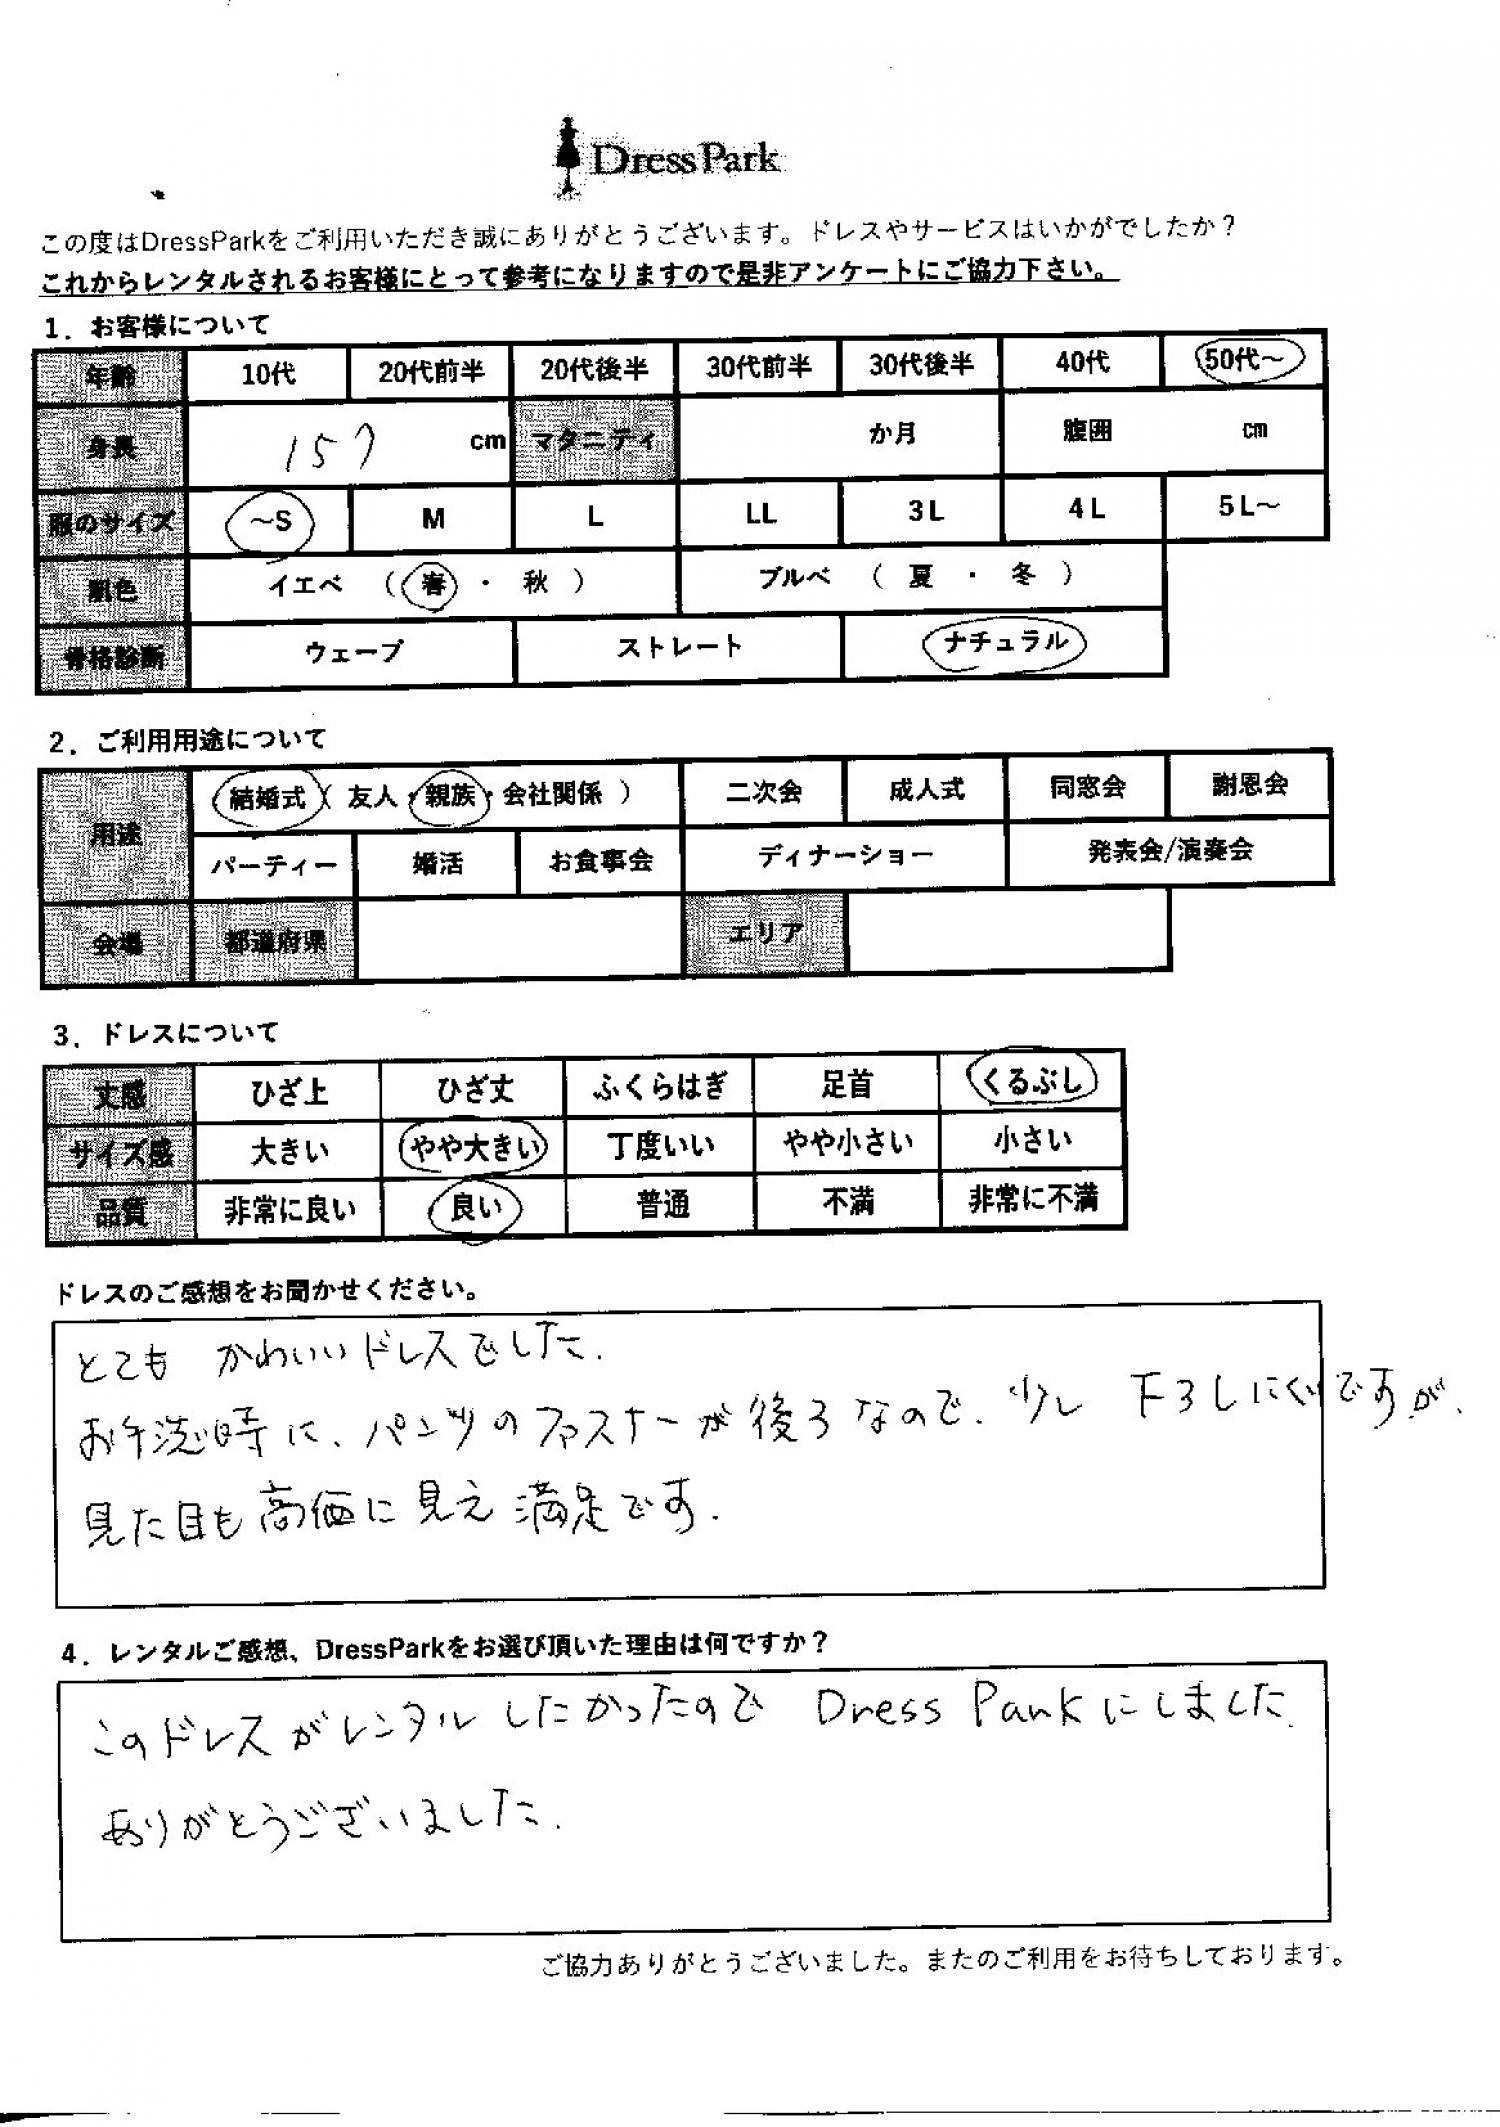 DressPark
この度はDressParkをご利用いただき誠にありがとうございます。ドレスやサービスはいかがでしたか？
これからレンタルされるお客様にとって参考になりますので是非アンケートにご協力下さい。
1．お客様について
年齢 10代 20代前半 20代後半 30代前半 30代後半 40代 50代～
身長 157 cm マタニティ か月 腹囲 cm
服のサイズ ～S M L LL 3L 4L 5L～
肌色 イエベ （ 春 ・ 秋 ） ブルベ （ 夏 ・ 冬 ）
骨格診断 ウェーブ ストレート ナチュラル
2．ご利用用途について
用途 結婚式（ 友人・親族・会社関係 ） 二次会 成人式 同窓会 謝恩会
パーティー 婚活 お食事会 ディナーショー 発表会/演奏会
会場 都道府県 エリア
3．ドレスについて
丈感 ひざ上 ひざ丈 ふくらはぎ 足首 くるぶし
サイズ感 大きい やや大きい 丁度いい やや小さい 小さい
品質 非常に良い 良い 普通 不満 非常に不満
ドレスのご感想をお聞かせください。
とても かわいいドレスでした.
お手洗時に、パンツのファスナーが後ろなので、少し 下ろしにくいですが、
見た目も高価に見え満足です.
4．レンタルご感想、DressParkをお選び頂いた理由は何ですか？
このドレスがレンタルしたかったので Dress Parkにしました.
ありがとうございました.
ご協力ありがとうございました。またのご利用をお待ちしております。